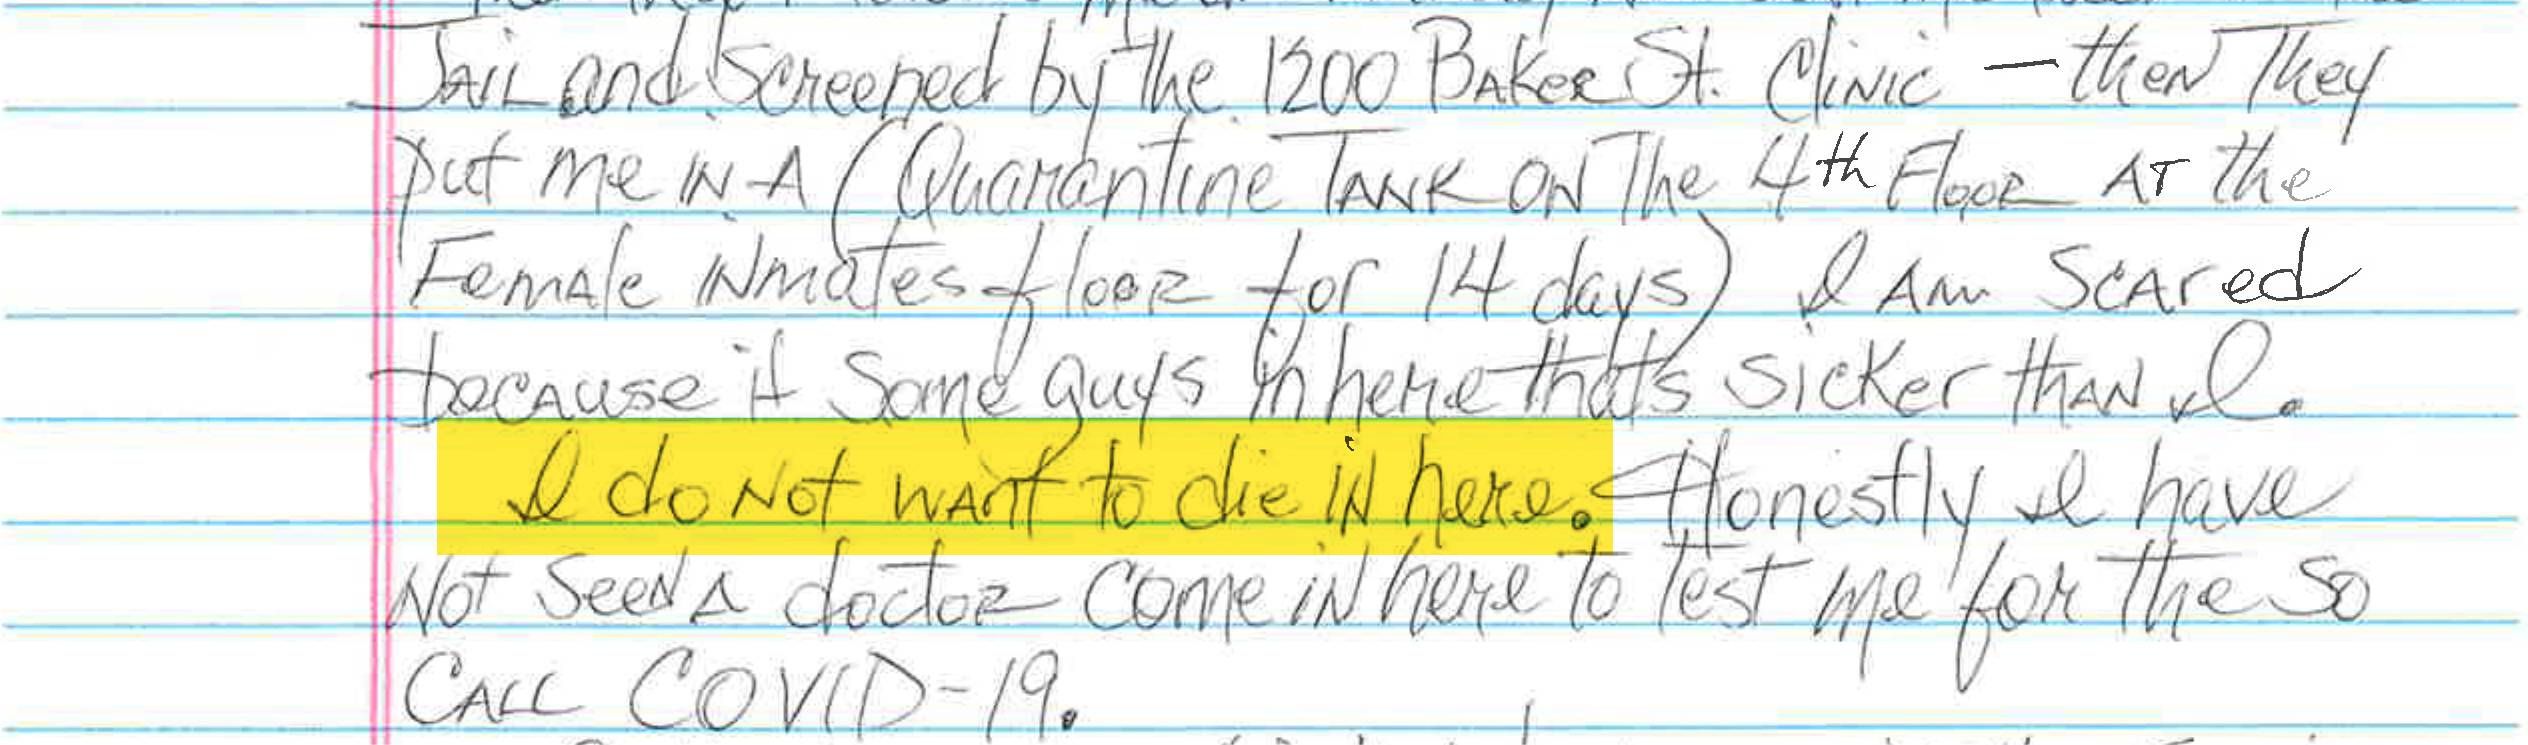 Jail and Screened by the 1200 Baker St. Clinic — then They
put me in A (Quarantine Tank on The 4th Floor At the
Female inmates floor for 14 days) I Am Scared
because it Some guys in here that's sicker than I.
I do Not want to die in here. Honestly I have
Not Seen A doctor come in here to Test me for the So
Call COVID-19.